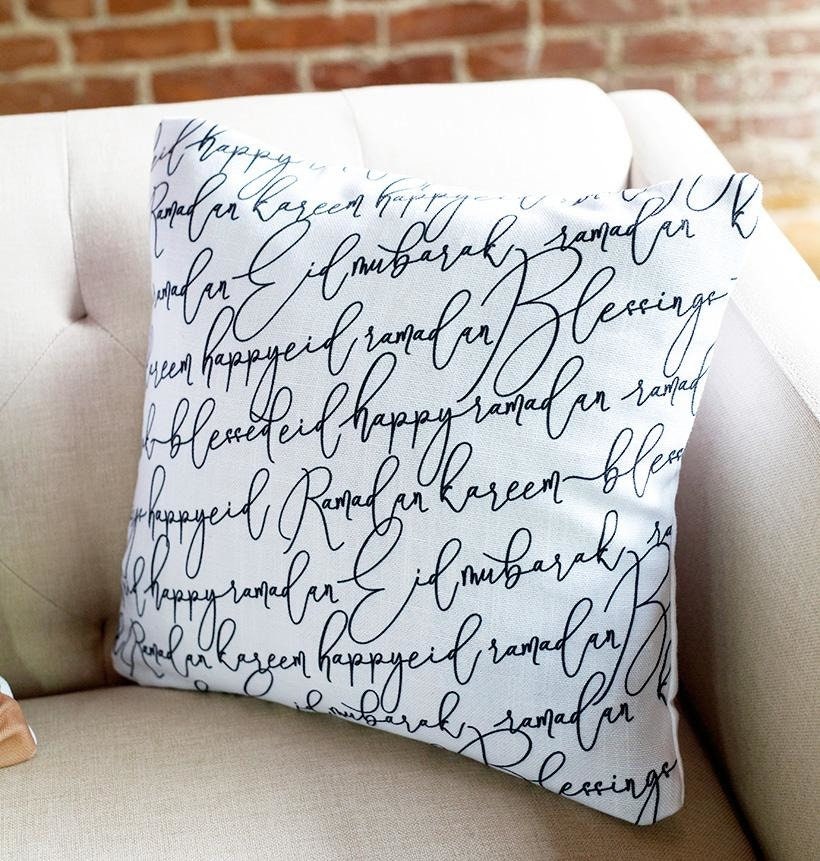 eid happy
Ramadan kareem happy
ramadan Eid mubarak ramadan k
kareem happy eid ramadan Blessings
blessed eid happy ramadan ramad
happy eid Ramadan kareem bless
happy ramadan Eid mubarak ra
Ramadan kareem happy eid ramadan B
mubarak ramadan k
Blessings